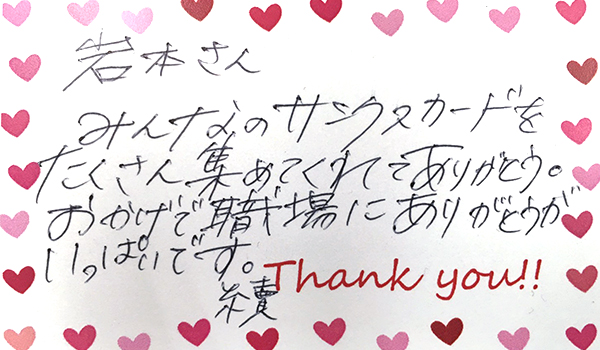 岩本さん
みんなのサンクスカードを
たくさん集めてくれてありがとう。
おかげで職場にありがとうが
いっぱいです。
Thank you!!
續